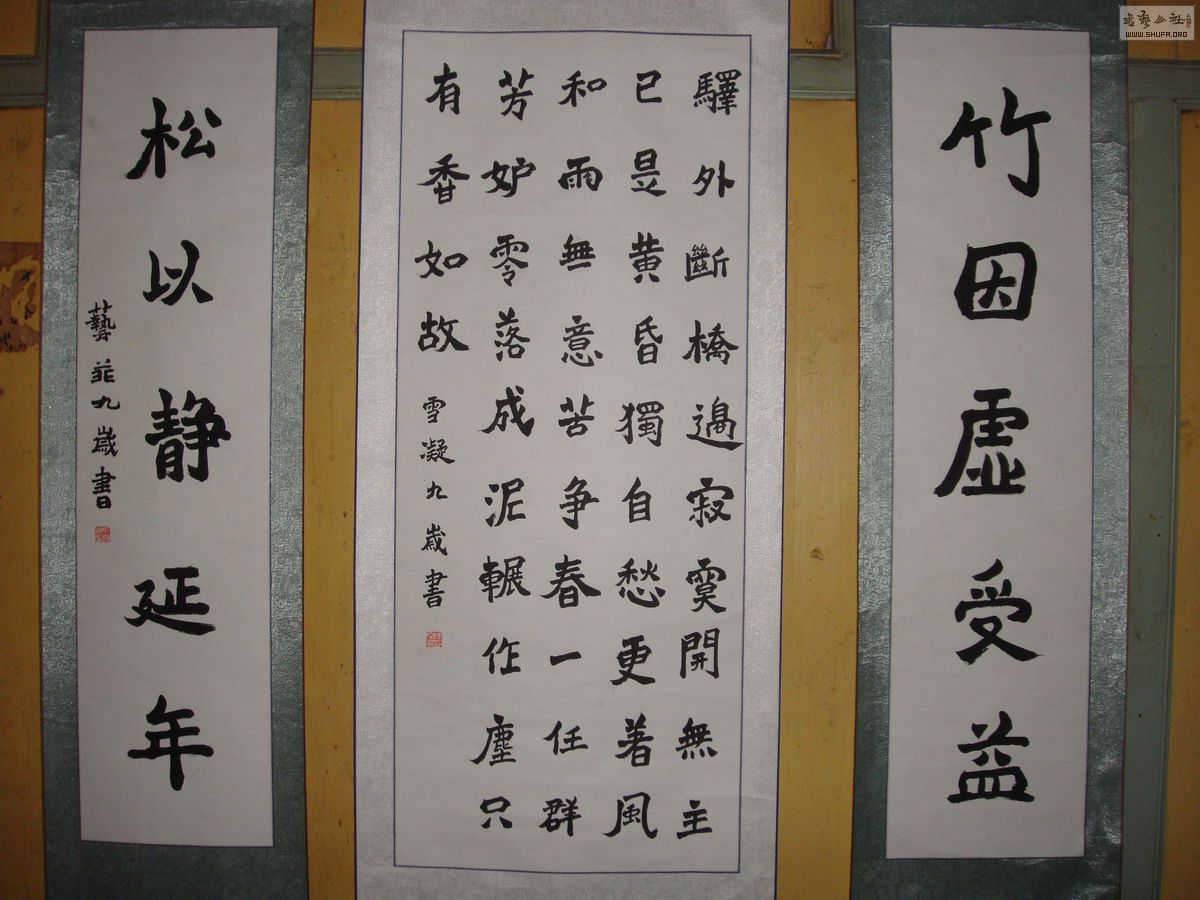 竹因虛受益
驛外斷橋邊寂寞開無主
已是黄昏獨自愁更著風
和雨無意苦争春一任群
芳妒零落成泥輾作塵只
有香如故
雪凝九歲書
松以静延年
九歲書
WWW.SHUFA.ORG